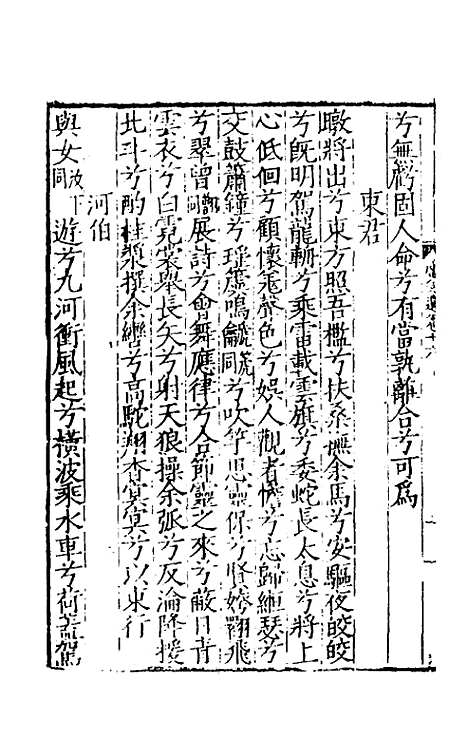 兮無虧固人命兮有當孰離合兮可為
東君
暾將出兮東方照吾檻兮扶桑撫余馬兮安驅夜皎皎
兮旣明駕龍輈兮乘雷載雲旗兮委蛇長太息兮將上
心低佪兮顧懷羗聲色兮娛人觀者憺兮忘歸緪瑟兮
交鼓簫鐘兮瑤簴鳴鷈兮吹竽思靈保兮賢姱翾飛
兮翠曾展詩兮會舞應律兮合節靈之來兮蔽日青
雲衣兮白霓裳舉長矢兮射天狼操余弧兮反淪降援
北斗兮酌桂漿撰余轡兮高駝翔杳冥冥兮以東行
河伯
與女遊兮九河衝風起兮橫波乘水車兮荷蓋駕